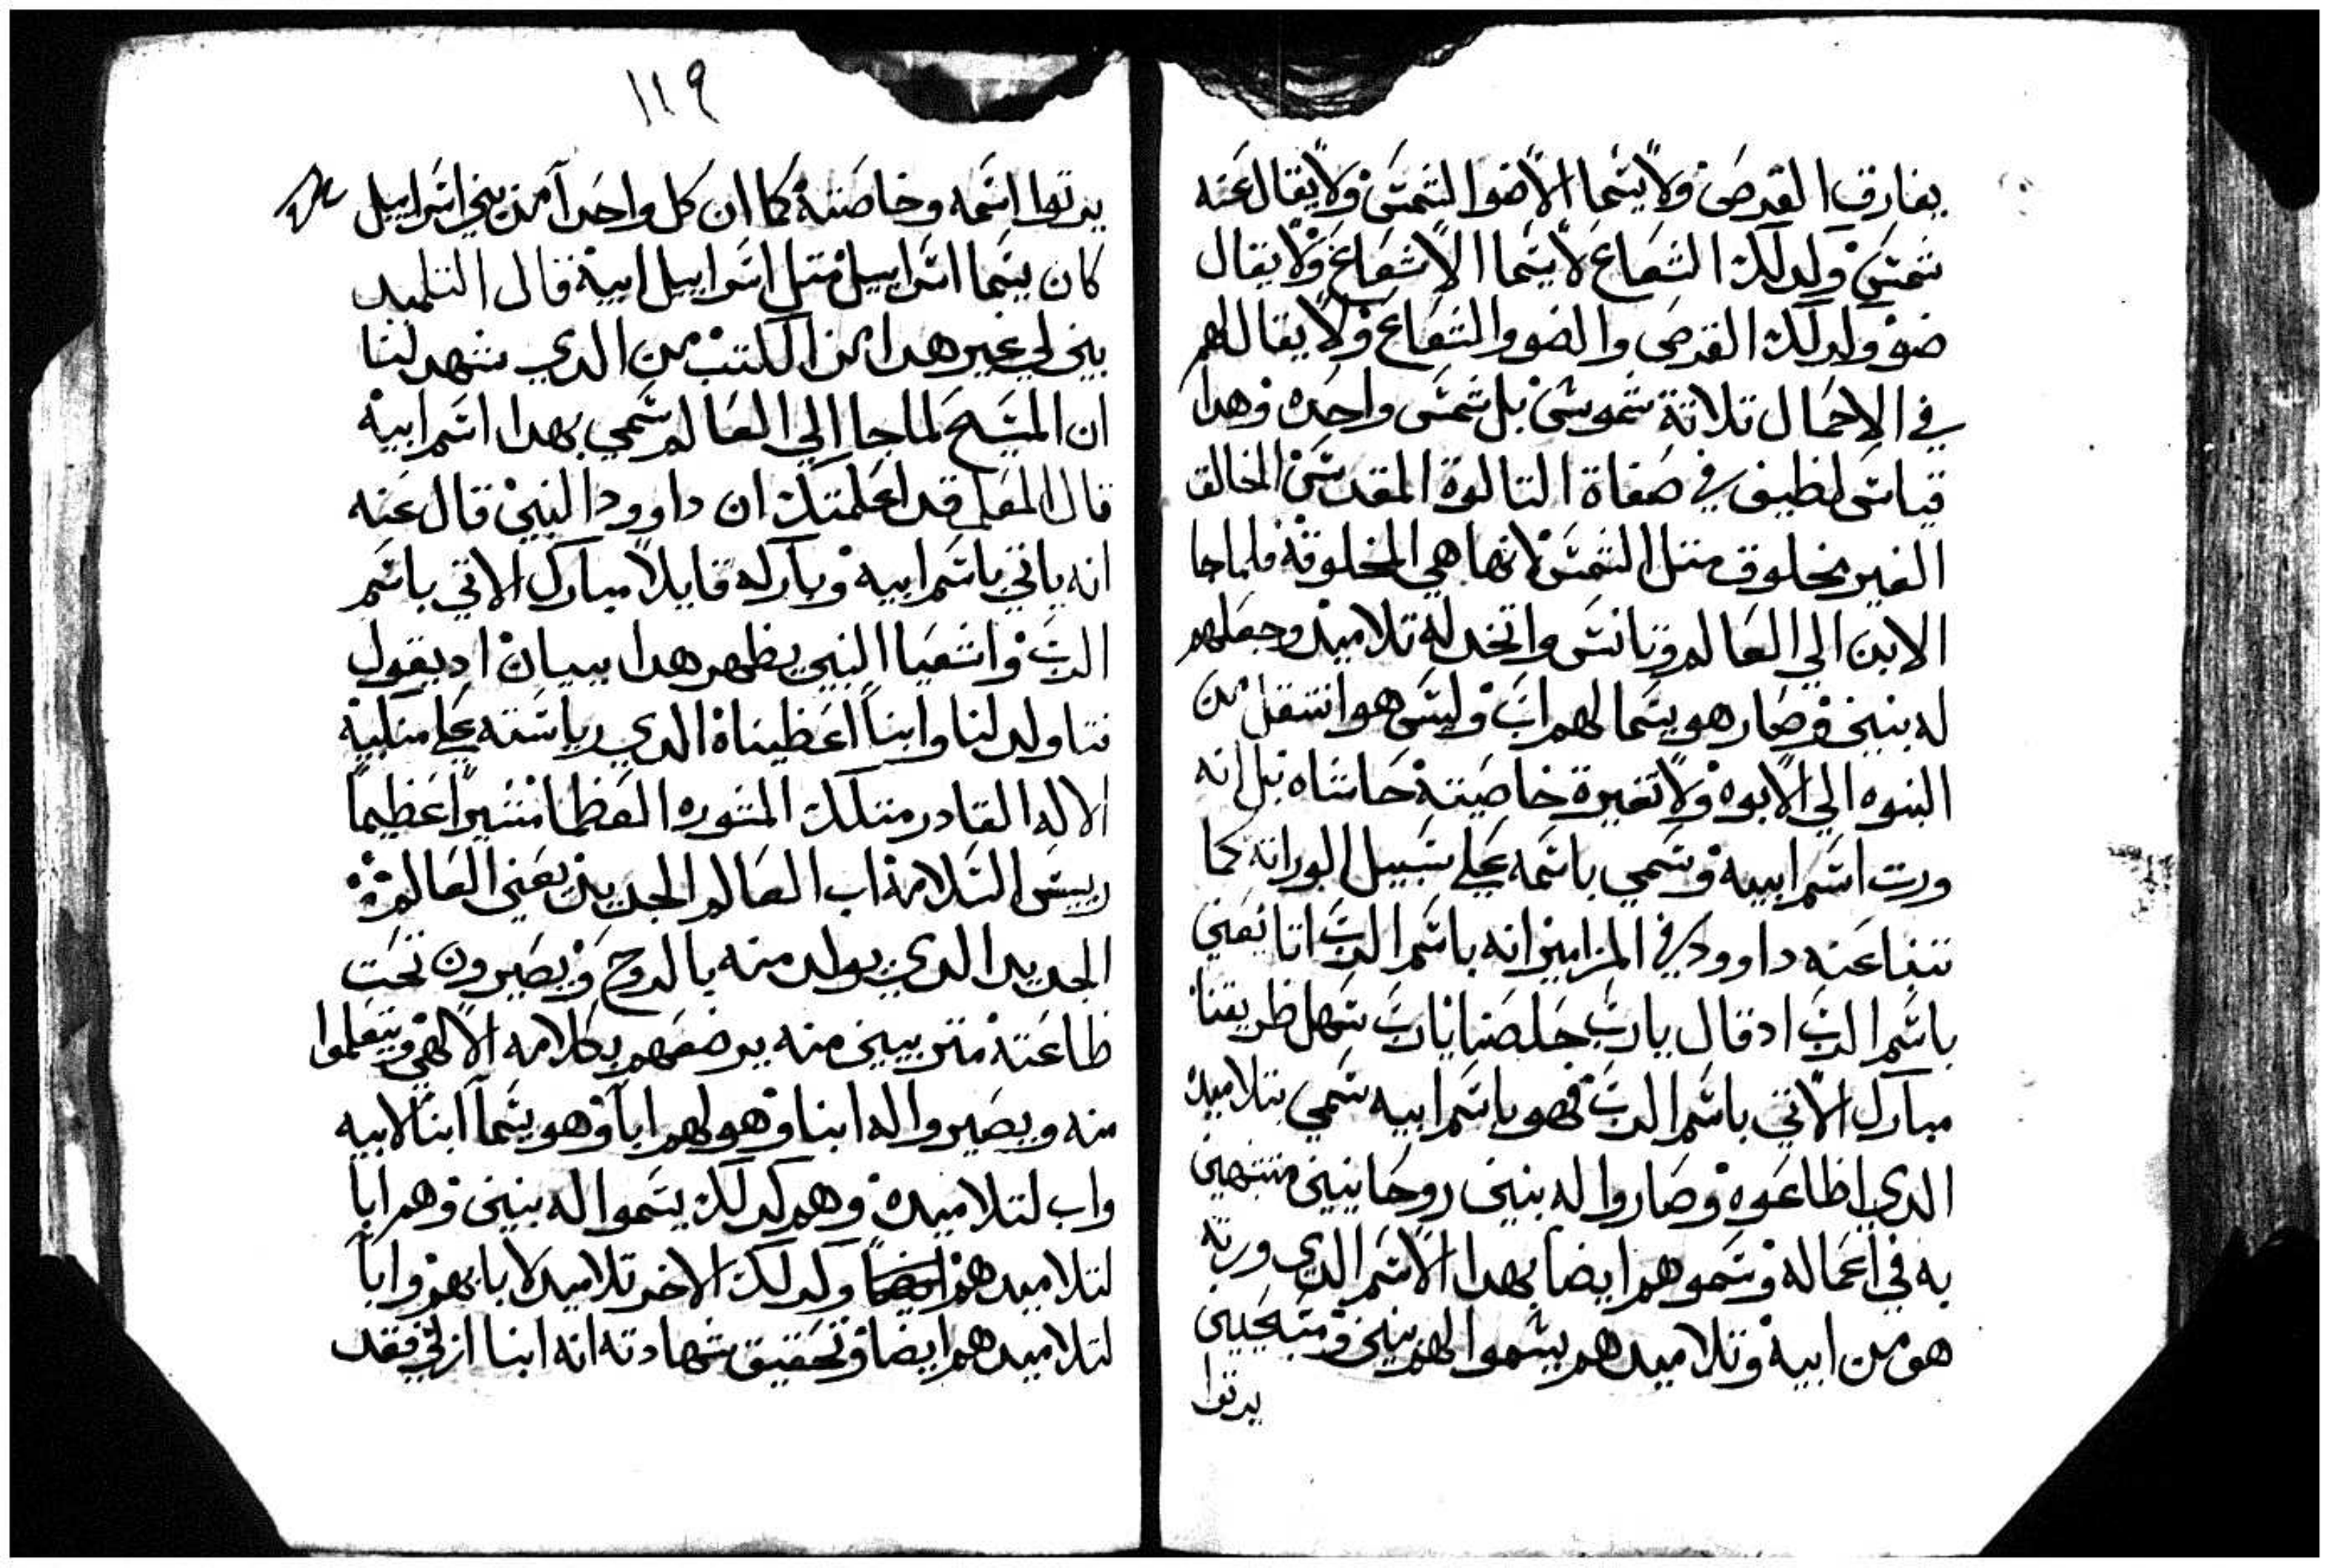 يفارق القرص ولا يسما الا ضو الشمس ولا يقال عنه
شمس ولدلك الشعاع لا يسما الا شعاع ولا يقال
ضو ولدلك القرص والضو والشعاع ولا يقال لهم
في الاحمال تلاتة شموس بل شمس واحده وهدا
قياس لطيف في صفاة التالوة المقدس الخالق
الغير مخلوق متل الشمس لانها هي المخلوقة فلما جا
الابن الي العالم وتانس واتخد له تلاميد وجعلهم
له بنين وصار هو يسما لهم اب وليس هو انتقل من
البنوه الي الابوه ولا تغيرة خاصيته حاشاه بل انه
ورت اسم ابيه وسمي باسمه علي سبيل الوراته كما
تنبا عنه داوود في المزامير انه باسم الرب اتا يعني
باسم الرب اد قال يارب خلصنا يارب سهل طريقنا
مبارك الاتي باسم الرب فهو باسم ابيه سمي بتلاميده
الدي اطاعوه وصاروا له بنين روحانيين متشبهين
به في اعماله وسموهم ايضا بهدا الاسم الدي ورته
هو من ابيه وتلاميدهم يسموا لهم بنين
يرتوا
١١٩
يرتوا اسمه وخاصته كما ان كل واحدا من بني اسراييل
كان يسما اسراييل متل اسراييل ابيه قال التلميد
بين لي غير هدا من الكتب من الدي شهد لنا
ان المسيح لما جا الي العالم سمي بهدا اسم ابيه
قال المعلم قد اعلمتك ان داوود النبي قال عنه
انه ياتي باسم ابيه وباركه قايلا مبارك الاتي باسم
الرب واشعيا النبي يظهر هدا ببيان اد يقول
فتا ولد لنا وابنا اعطيناه الدي رياسته علي منكبيه
الاله القادر متلك المشوره العظما مشيرا عظيما
رييس السلامة اب العالم الجديد يعني العالم
الجديد الدي يولد منه بالروح ويصيرون تحت
طاعته متربيين منه يرضعهم بكلامه الالهي ويتعلموا
منه ويصيروا له ابنا وهو لهم ابا وهو يسما ابنا لابيه
واب لتلاميده وهم كدلك يسموا له بنين وهم ابا
لتلاميدهم ايضا وكدلك الاخر تلاميد لابايهم وابا
لتلاميدهم ايضا وتحقيق شهادته انه ابنا ازلي فقد